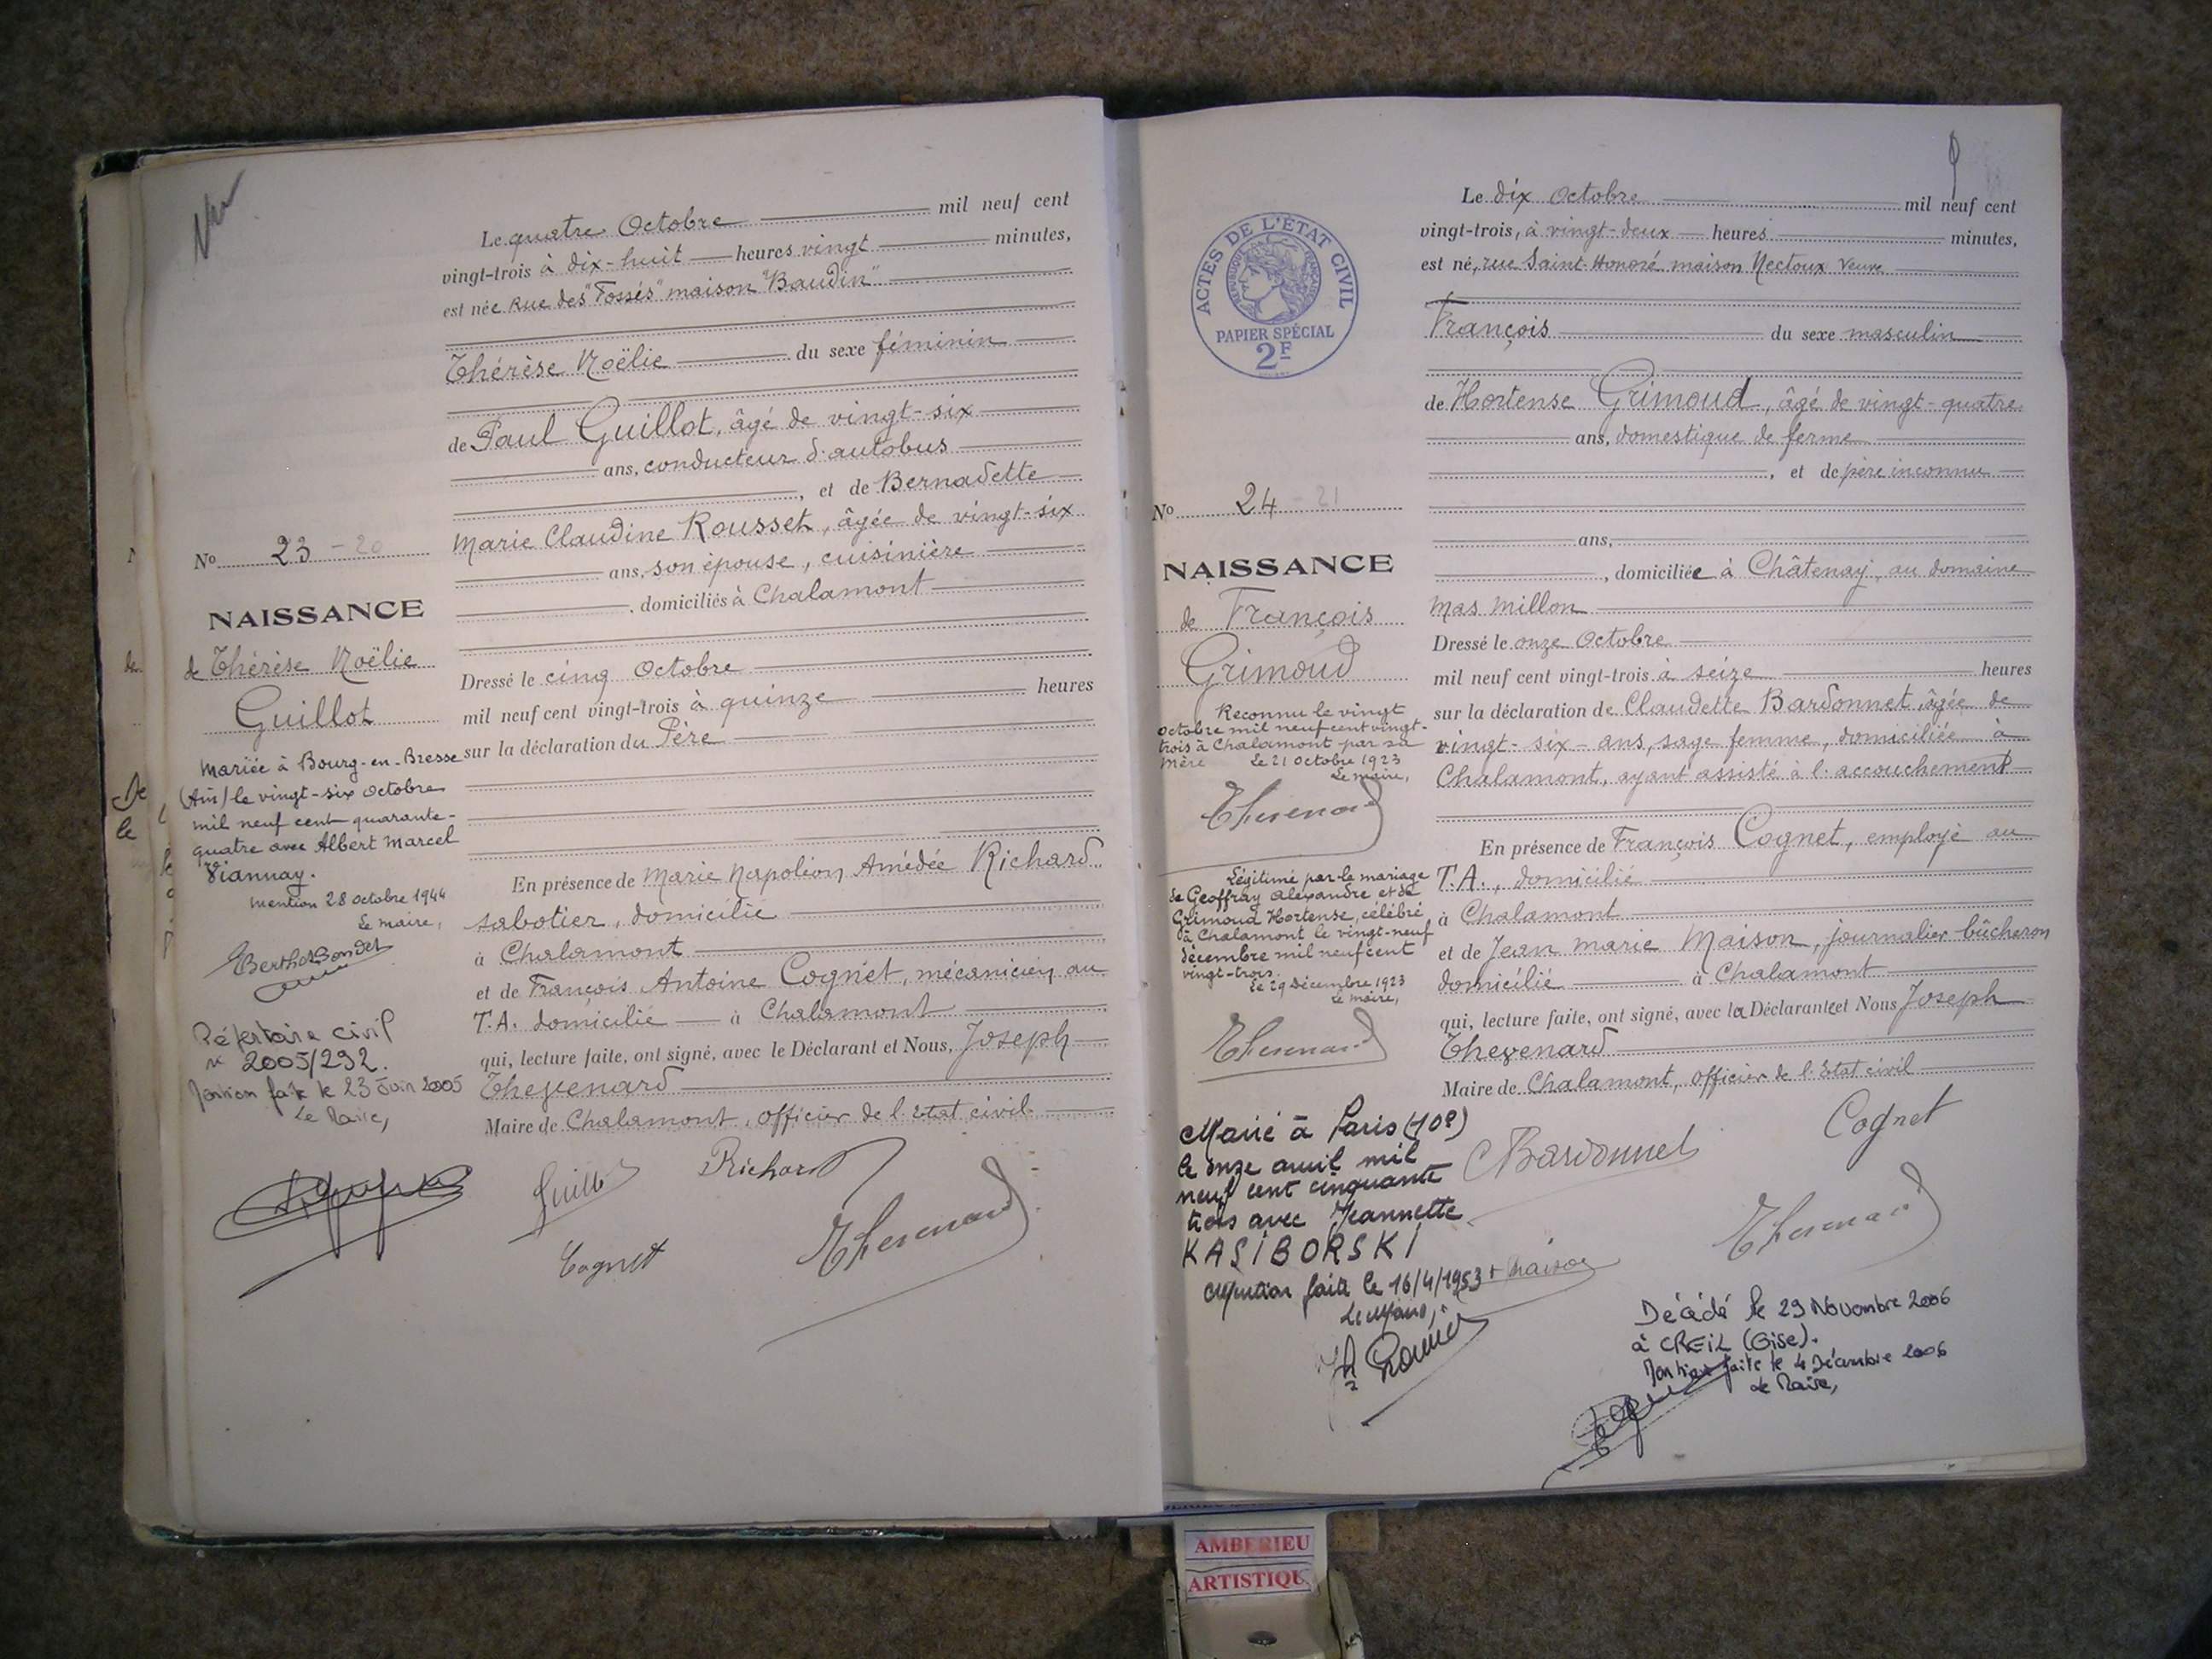 Le quatre Octobre mil neuf cent
vingt-trois à dix-huit heures vingt minutes,
est née Rue des "Fossés" maison "Baudin"
Thérèse Noëlie du sexe féminin
de Paul Guillot, âgé de vingt-six
ans, conducteur d'autobus
, et de Bernadette
Marie Claudine Rousset, âgée de vingt-six
ans, son épouse, cuisinière
, domiciliés à Chalamont
Dressé le cinq Octobre
mil neuf cent vingt-trois à quinze heures
sur la déclaration du Père
En présence de Marie Napoléon Amédée Richard
sabotier, domicilié
à Chalamont
et de François Antoine Cognet, mécanicien au
T.A. domicilié à Chalamont
qui, lecture faite, ont signé, avec le Déclarant et Nous, Joseph
Thevenard
Maire de Chalamont, Officier de l'Etat civil
No 23 - 20
NAISSANCE
de Thérèse Noëlie
Guillot
Mariée à Bourg-en-Bresse
(Ain) le vingt-six Octobre
mil neuf cent quarante-
quatre avec Albert Marcel
Viannay.
Mention 28 octobre 1944
Le maire,
Répertoire civil
n° 2005/292.
Mention faite le 23 Juin 2005
Le Maire,
Guillot
Richard
Cognet
Thevenard
ACTES DE L'ÉTAT CIVIL
RÉPUBLIQUE FRANÇAISE
PAPIER SPÉCIAL
2F
Le dix Octobre mil neuf cent
vingt-trois, à vingt-deux heures minutes,
est né, rue Saint-Honoré maison Nectoux Veuve
François du sexe masculin
de Hortense Grimoud, âgé de vingt-quatre
ans, domestique de ferme
, et de père inconnu
ans,
, domiciliée à Châtenay, au domaine
Mas Millon
Dressé le onze Octobre
mil neuf cent vingt-trois à seize heures
sur la déclaration de Claudette Bardonnet, âgée de
vingt-six-ans, sage femme, domiciliée à
Chalamont, ayant assisté à l'accouchement
En présence de François Cognet, employé au
T.A., domicilié
à Chalamont
et de Jean Marie Maison, journalier bûcheron
domicilié à Chalamont
qui, lecture faite, ont signé, avec la Déclarante et Nous Joseph
Thevenard
Maire de Chalamont, Officier de l'Etat civil
No 24 - 21
NAISSANCE
de François
Grimoud
Reconnu le vingt
octobre mil neuf cent vingt-
trois à Chalamont par sa
mère Le 21 octobre 1923
Le maire,
Thevenard
Légitimé par le mariage
de Geoffray Alexandre et de
Grimoud Hortense, célébré
à Chalamont le vingt-neuf
décembre mil neuf cent
vingt-trois.
Le 29 Décembre 1923
Le maire,
Thevenard
Marié à Paris (10e)
le onze avril mil
neuf cent cinquante
trois avec Jeannette
KASIBORSKI
Mention faite le 16/4/1953
Le Maire,
Bardonnet
Cognet
Maison
Thevenard
Décédé le 29 Novembre 2006
à CREIL (Oise).
Mention faite le 4 Décembre 2006
Le Maire,
AMBERIEU
ARTISTIQU